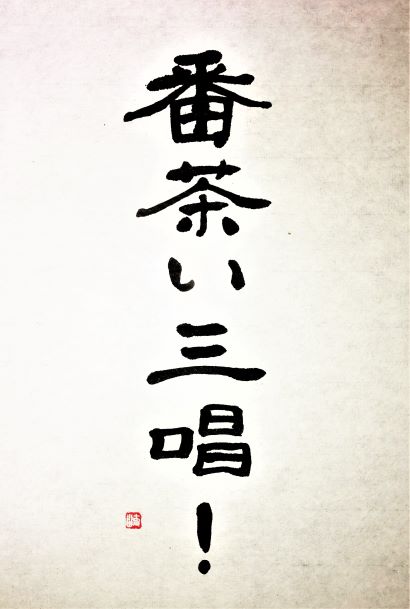 番茶い三唱！